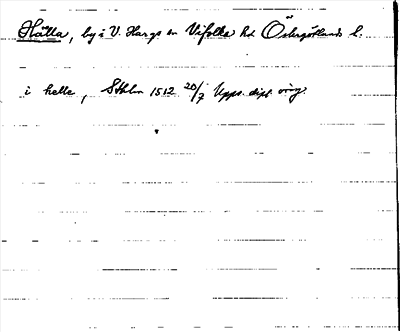 Hälla, by i V. Hargs sn Vifolka hd Östergötlands l.
i helle, Sthlm 1512 20/7 Upps. dipl. orig.